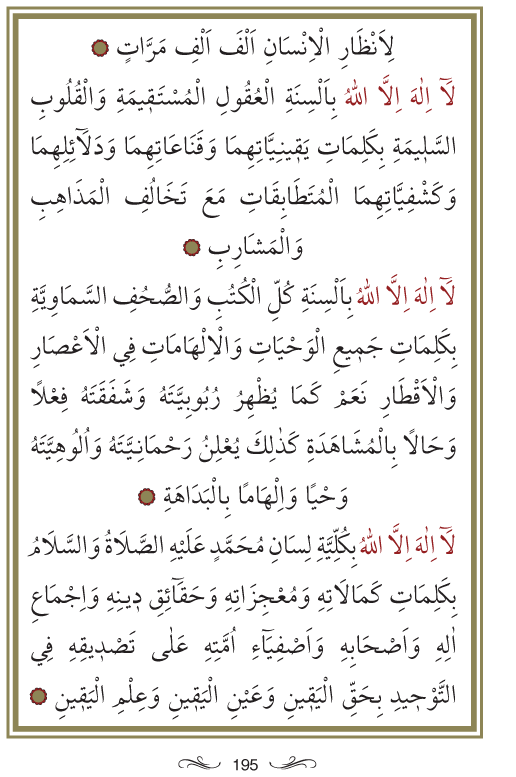 لِاَنْظَارِ الْاِنْسَانِ اَلْفَ اَلْفِ مَرَّاتٍ
لَٓا اِلٰهَ اِلَّا اللهُ بِاَلْسِنَةِ الْعُقُولِ الْمُسْتَقٖيمَةِ وَالْقُلُوبِ
السَّلٖيمَةِ بِكَلِمَاتِ يَقٖينِيَّاتِهِمَا وَقَنَاعَاتِهِمَا وَدَلَٓائِلِهِمَا
وَكَشْفِيَّاتِهِمَا الْمُتَطَابِقَاتِ مَعَ تَخَالُفِ الْمَذَاهِبِ
وَالْمَشَارِبِ
لَٓا اِلٰهَ اِلَّا اللهُ بِاَلْسِنَةِ كُلِّ الْكُتُبِ وَالصُّحُفِ السَّمَاوِيَّةِ
بِكَلِمَاتِ جَمٖيعِ الْوَحْيَاتِ وَالْاِلْهَامَاتِ فِي الْاَعْصَارِ
وَالْاَقْطَارِ نَعَمْ كَمَا يُظْهِرُ رُبُوبِيَّتَهُ وَشَفَقَتَهُ فِعْلًا
وَحَالًا بِالْمُشَاهَدَةِ كَذٰلِكَ يُعْلِنُ رَحْمَانِيَّتَهُ وَاُلُوهِيَّتَهُ
وَحْيًا وَاِلْهَامًا بِالْبَدَاهَةِ
لَٓا اِلٰهَ اِلَّا اللهُ بِكُلِّيَّةِ لِسَانِ مُحَمَّدٍ عَلَيْهِ الصَّلَاةُ وَالسَّلَامُ
بِكَلِمَاتِ كَمَالَاتِهِ وَمُعْجِزَاتِهِ وَحَقَٓائِقِ دٖينِهِ وَاِجْمَاعِ
اٰلِهِ وَاَصْحَابِهِ وَاَصْفِيَٓاءِ اُمَّتِهِ عَلٰى تَصْدٖيقِهِ فِي
التَّوْحٖيدِ بِحَقِّ الْيَقٖينِ وَعَيْنِ الْيَقٖينِ وَعِلْمِ الْيَقٖينِ
195